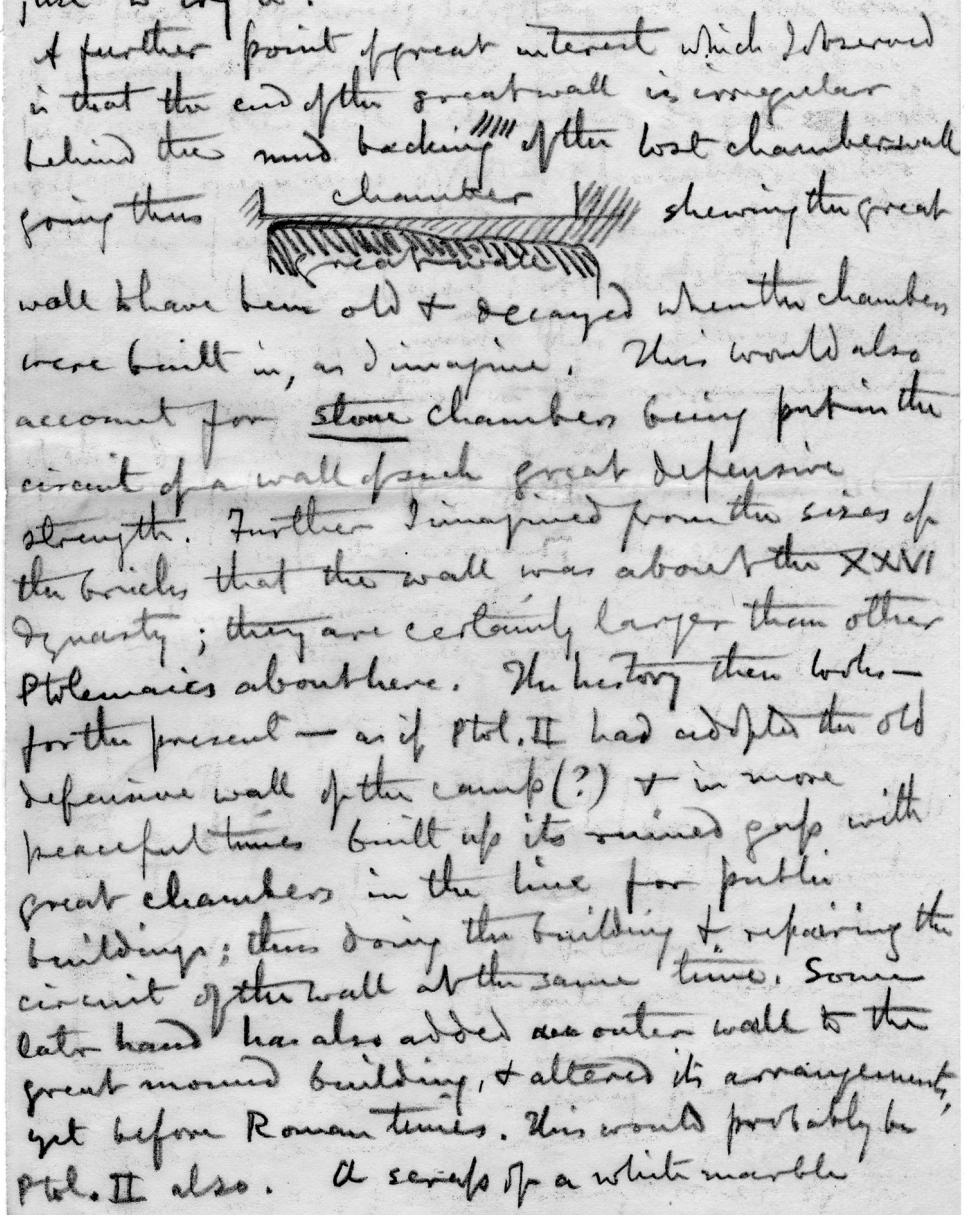 A further point of great interest which I observed
is that the end of the great wall is irregular
behind the mud backing of the lost chamber wall
going thus chamber shewing the great
great wall
wall to have been old & decayed when the chambers
were built in, as I imagine. This would also
account for stone chambers being put in the
circuit of a wall of such great defensive
strength. Further I imagined from the sizes of
the bricks that the wall was about the XXVI
Dynasty; they are certainly larger than other
Ptolemaics about here. The history then looks —
for the present — as if Ptol. II had adopted the old
defensive wall of the camp (?) & in more
peaceful times built up its ruined gap with
great chambers in the line for public
buildings; thus doing the building & repairing the
circuit of the wall at the same time. Some
later hand has also added an outer wall to the
great mound building, & altered its arrangements,
yet before Roman times. This would probably be
Ptol. II also. A scrap of a white marble